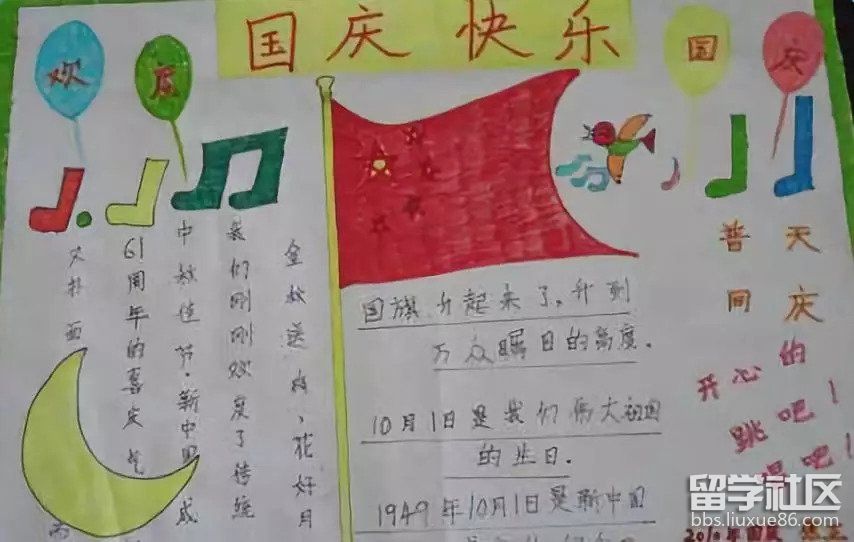 国庆快乐
欢
庆
国
庆
金秋送爽，花好月
我们刚刚欢度了传统
中秋佳节，新中国成
61周年的喜庆气
又扑面
国旗升起来了，升到
万众瞩目的高度。
10月1日是我们伟大祖国
的生日。
1949年10月1日是新中国
普天
同庆
开心的
跳吧！
唱吧！
2010年国庆
留学社区
bbs.liuxue86.com